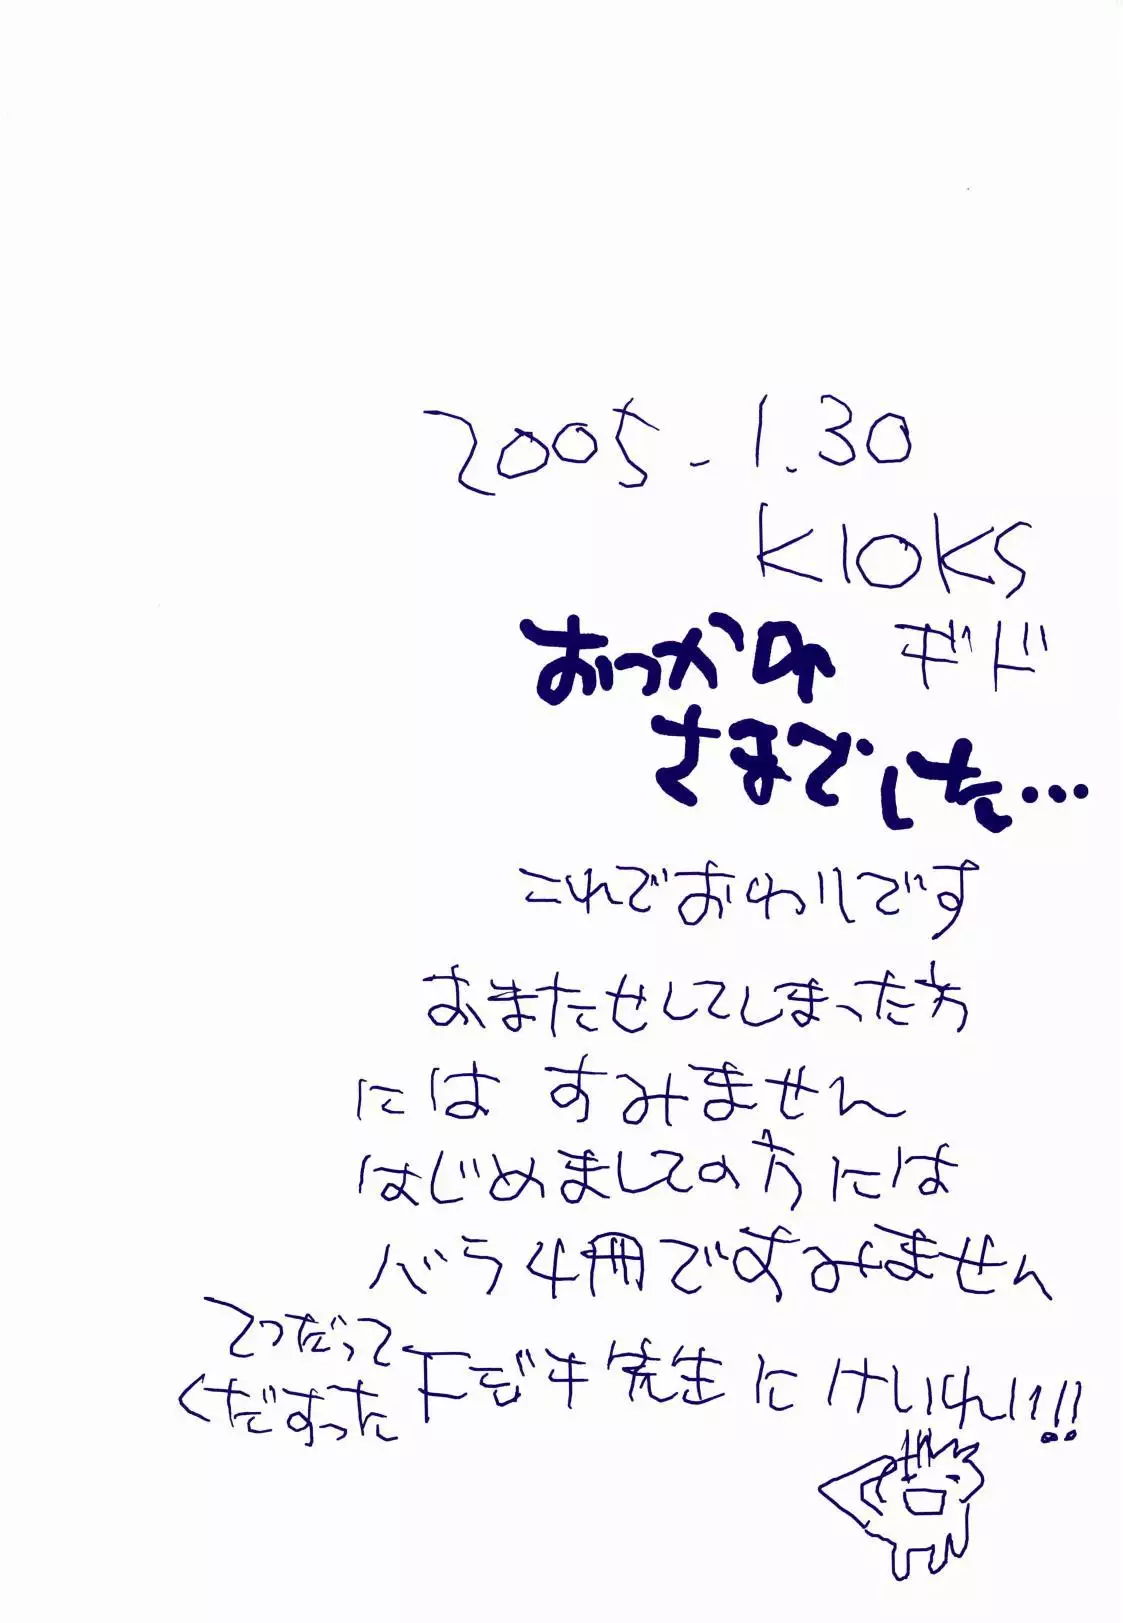 2005.1.30
KIOKS
おつかれ ギド
さまでした…
これでおわりです
おまたせしてしまった方
には すみません
はじめましての方には
バラ4冊ですみません
てつだって
くだすった
先生にけいれい!!